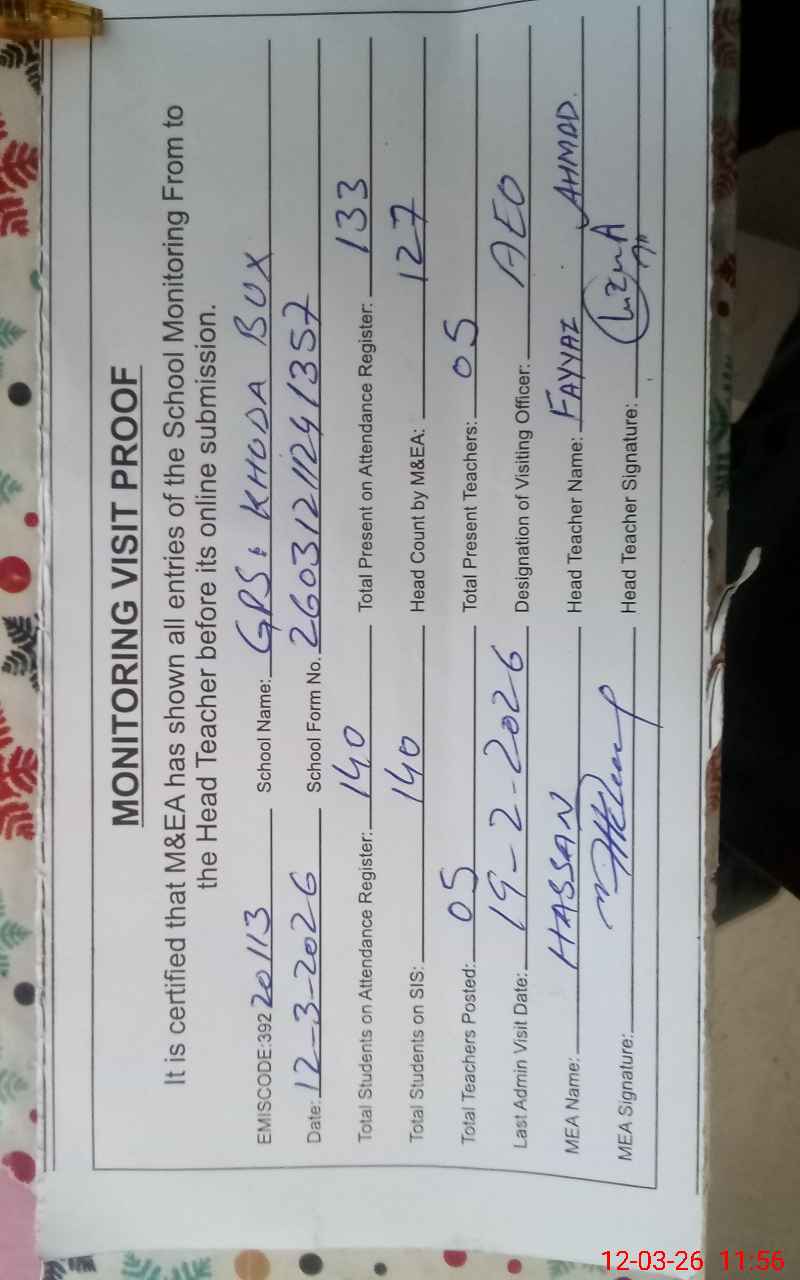 MONITORING VISIT PROOF
It is certified that M&EA has shown all entries of the School Monitoring From to
the Head Teacher before its online submission.
EMISCODE:392 20113 School Name: GPS. KHUDA BUX
Date: 12-3-2026 School Form No. 26031211241357
Total Students on Attendance Register: 140 Total Present on Attendance Register: 133
Total Students on SIS: 140 Head Count by M&EA: 127
Total Teachers Posted: 05 Total Present Teachers: 05
Last Admin Visit Date: 19-2-2026 Designation of Visiting Officer: AEO
MEA Name: HASSAN Head Teacher Name: FAYYAZ AHMAD.
MEA Signature: Head Teacher Signature:
12-03-26 11:56